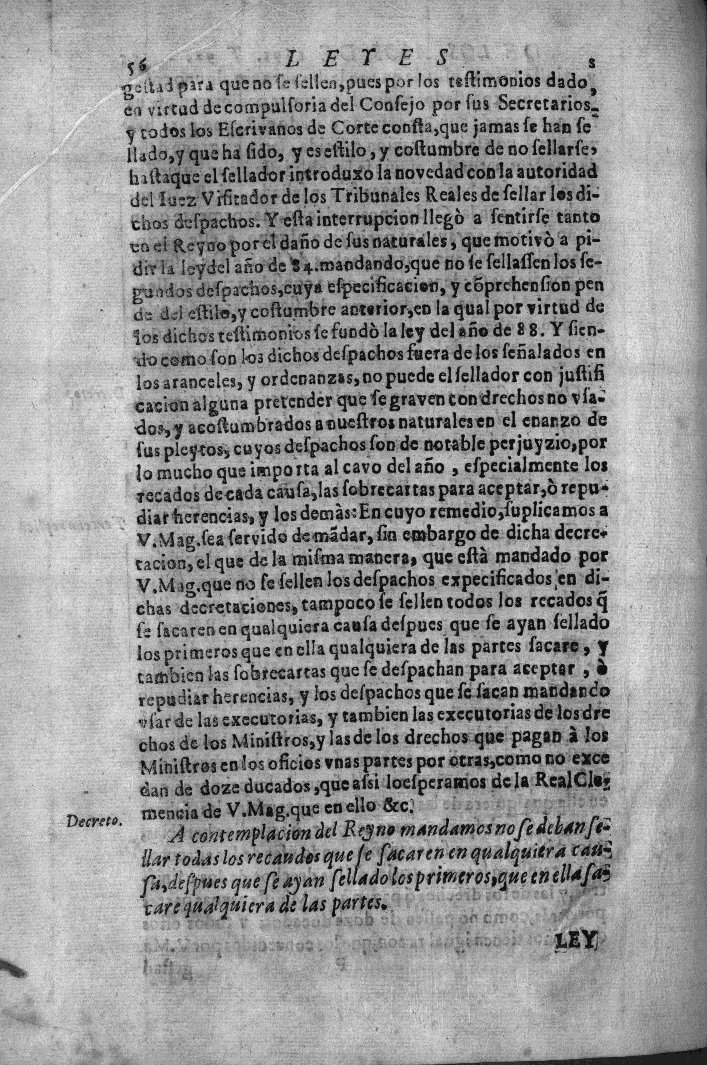 56 LEYES
gestad para que no se sellen, pues por los testimonios dado s
en virtud de compulsoria del Consejo por sus Secretarios-
y todos los Escrivanos de Corte consta, que jamas se han se
llado, y que ha sido, y es estilo, y costumbre de no sellarse,
hastaque el sellador introduxo la novedad con la autoridad
del Iuez Visitador de los Tribunales Reales de sellar los di-
chos despachos. Y esta interrupcion llegò a sentirse tanto
en el Reyno por el daño de sus naturales, que motivò a pi-
dir la ley del año de 84. mandando, que no se sellassen los se-
gundos despachos, cuya especificacion, y cõprehension pen
de del estilo, y costumbre anterior, en la qual por virtud de
los dichos testimonios se fundò la ley del año de 88. Y sien-
do como son los dichos despachos fuera de los señalados en
los aranceles, y ordenanzas, no puede el sellador con justifi
cacion alguna pretender que se graven con drechos no vsa-
dos, y acostumbrados a nuestros naturales en el enanzo de
sus pleytos, cuyos despachos son de notable perjuyzio, por
lo mucho que importa al cavo del año, especialmente los
recados de cada causa, las sobrecartas para aceptar, ò repu-
diar herencias, y los demàs: En cuyo remedio, suplicamos a
V. Mag. sea servido de mãdar, sin embargo de dicha decre-
tacion, el que de la misma manera, que està mandado por
V. Mag. que no se sellen los despachos expecificados en di-
chas decretaciones, tampoco se sellen todos los recados q̃
se sacaren en qualquiera causa despues que se ayan sellado
los primeros que en ella qualquiera de las partes sacare, y
tambien las sobrecartas que se despachan para aceptar, ò
repudiar herencias, y los despachos que se sacan mandando
vsar de las executorias, y tambien las executorias de los dre
chos de los Ministros, y las de los drechos que pagan à los
Ministros en los oficios vnas partes por otras, como no exce
dan de doze ducados, que assi lo esperamos de la Real Cle-
mencia de V. Mag. que en ello &c.
Decreto.
A contemplacion del Reyno mandamos no se deban se-
llar todas los recaudos que se sacaren en qualquiera cau-
sa, despues que se ayan sellado los primeros, que en ella sa-
care qualquiera de las partes.
LEY